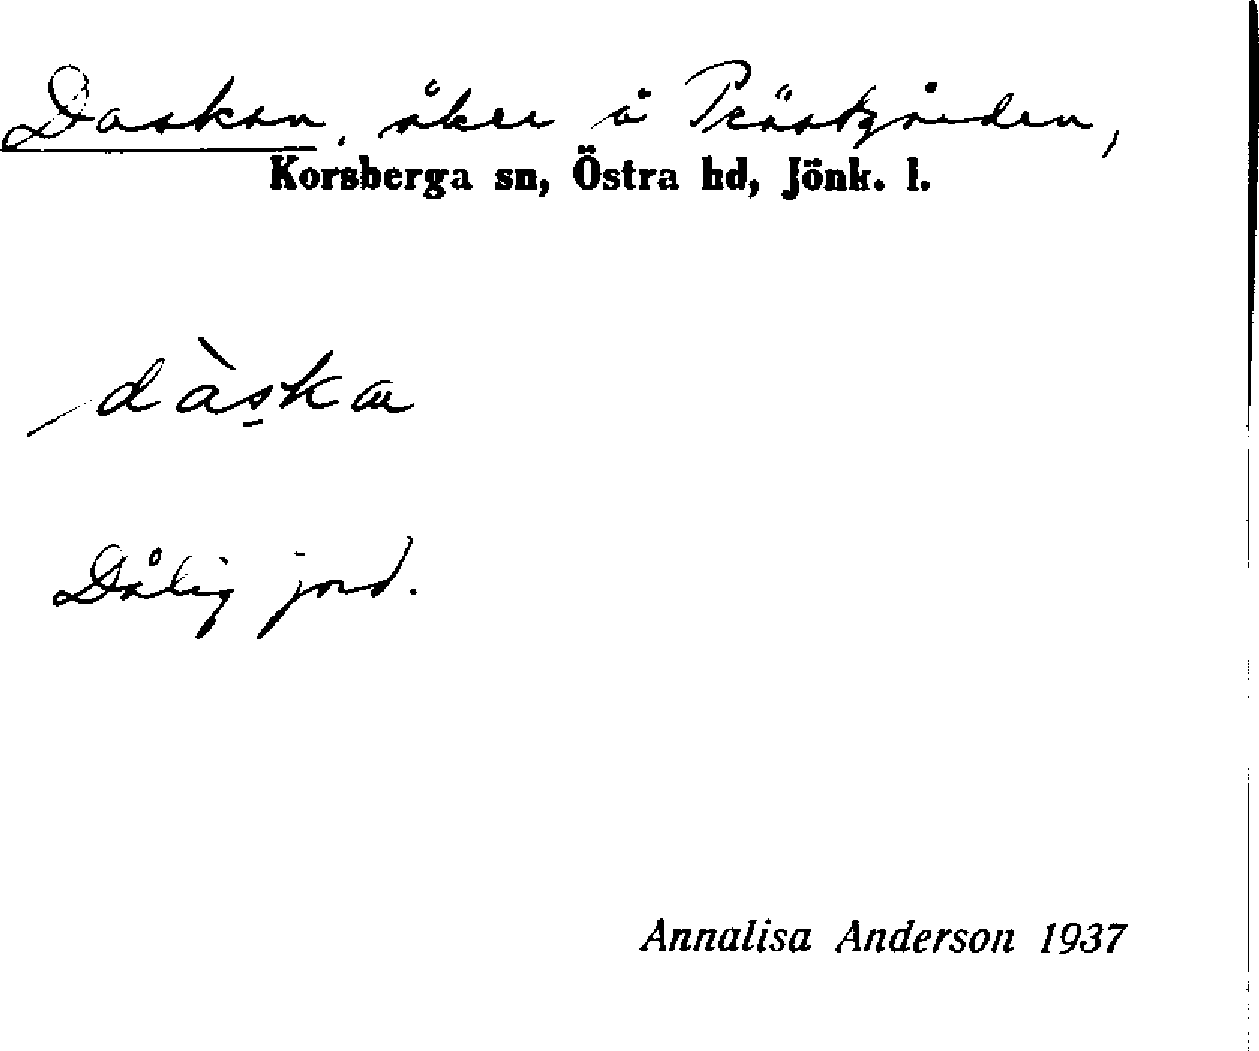 Daskan, åker å Prästgården,
Korsberga sn, Östra hd, Jönk. l.
dàska
Dålig jord.
Annalisa Anderson 1937